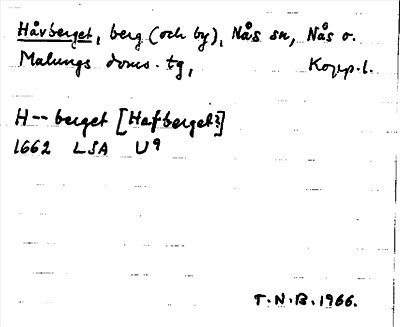 Håvberget, berg (och by), Nås sn, Nås o.
Malungs doms. tg, Kopp. l.
H-- berget [Hafberget?]
1662 LSA U9
T.N.B. 1966.